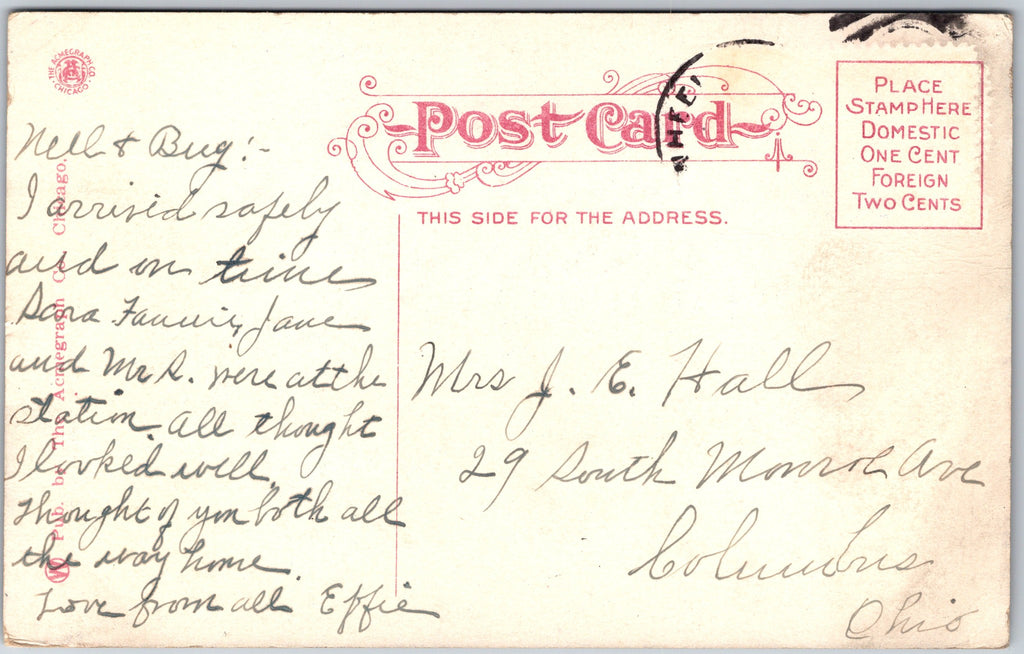 THE ACMEGRAPH CO.
CHICAGO
Post Card
THIS SIDE FOR THE ADDRESS.
PLACE
STAMP HERE
DOMESTIC
ONE CENT
FOREIGN
TWO CENTS
Nell & Bug:-
I arrived safely
and on time
Sara Fannie, Jane
and Mr S. were at the
station. All thought
I looked well.
Thought of you both all
the way home.
Love from all Effie
Mrs J. E. Hall
29 South Monroe Ave
Columbus
Ohio
Pub. by The Acmegraph Co. Chicago.